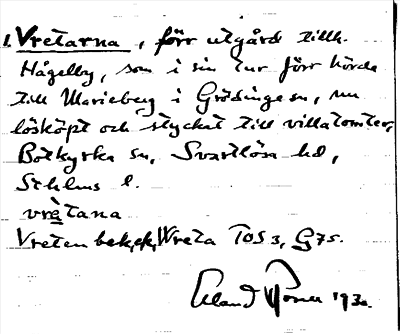 1. Vretarna, förr utgård tillh.
Hågelby, som i sin tur förr hörde
till Marieberg i Grödinge sn, nu
lösköpt och styckat till villatomter,
Botkyrka sn, Svartlösa hd,
Sthlms l.
vrètana
Vreten bek, ek, Wreta TOS 3, G75.
Erland 193